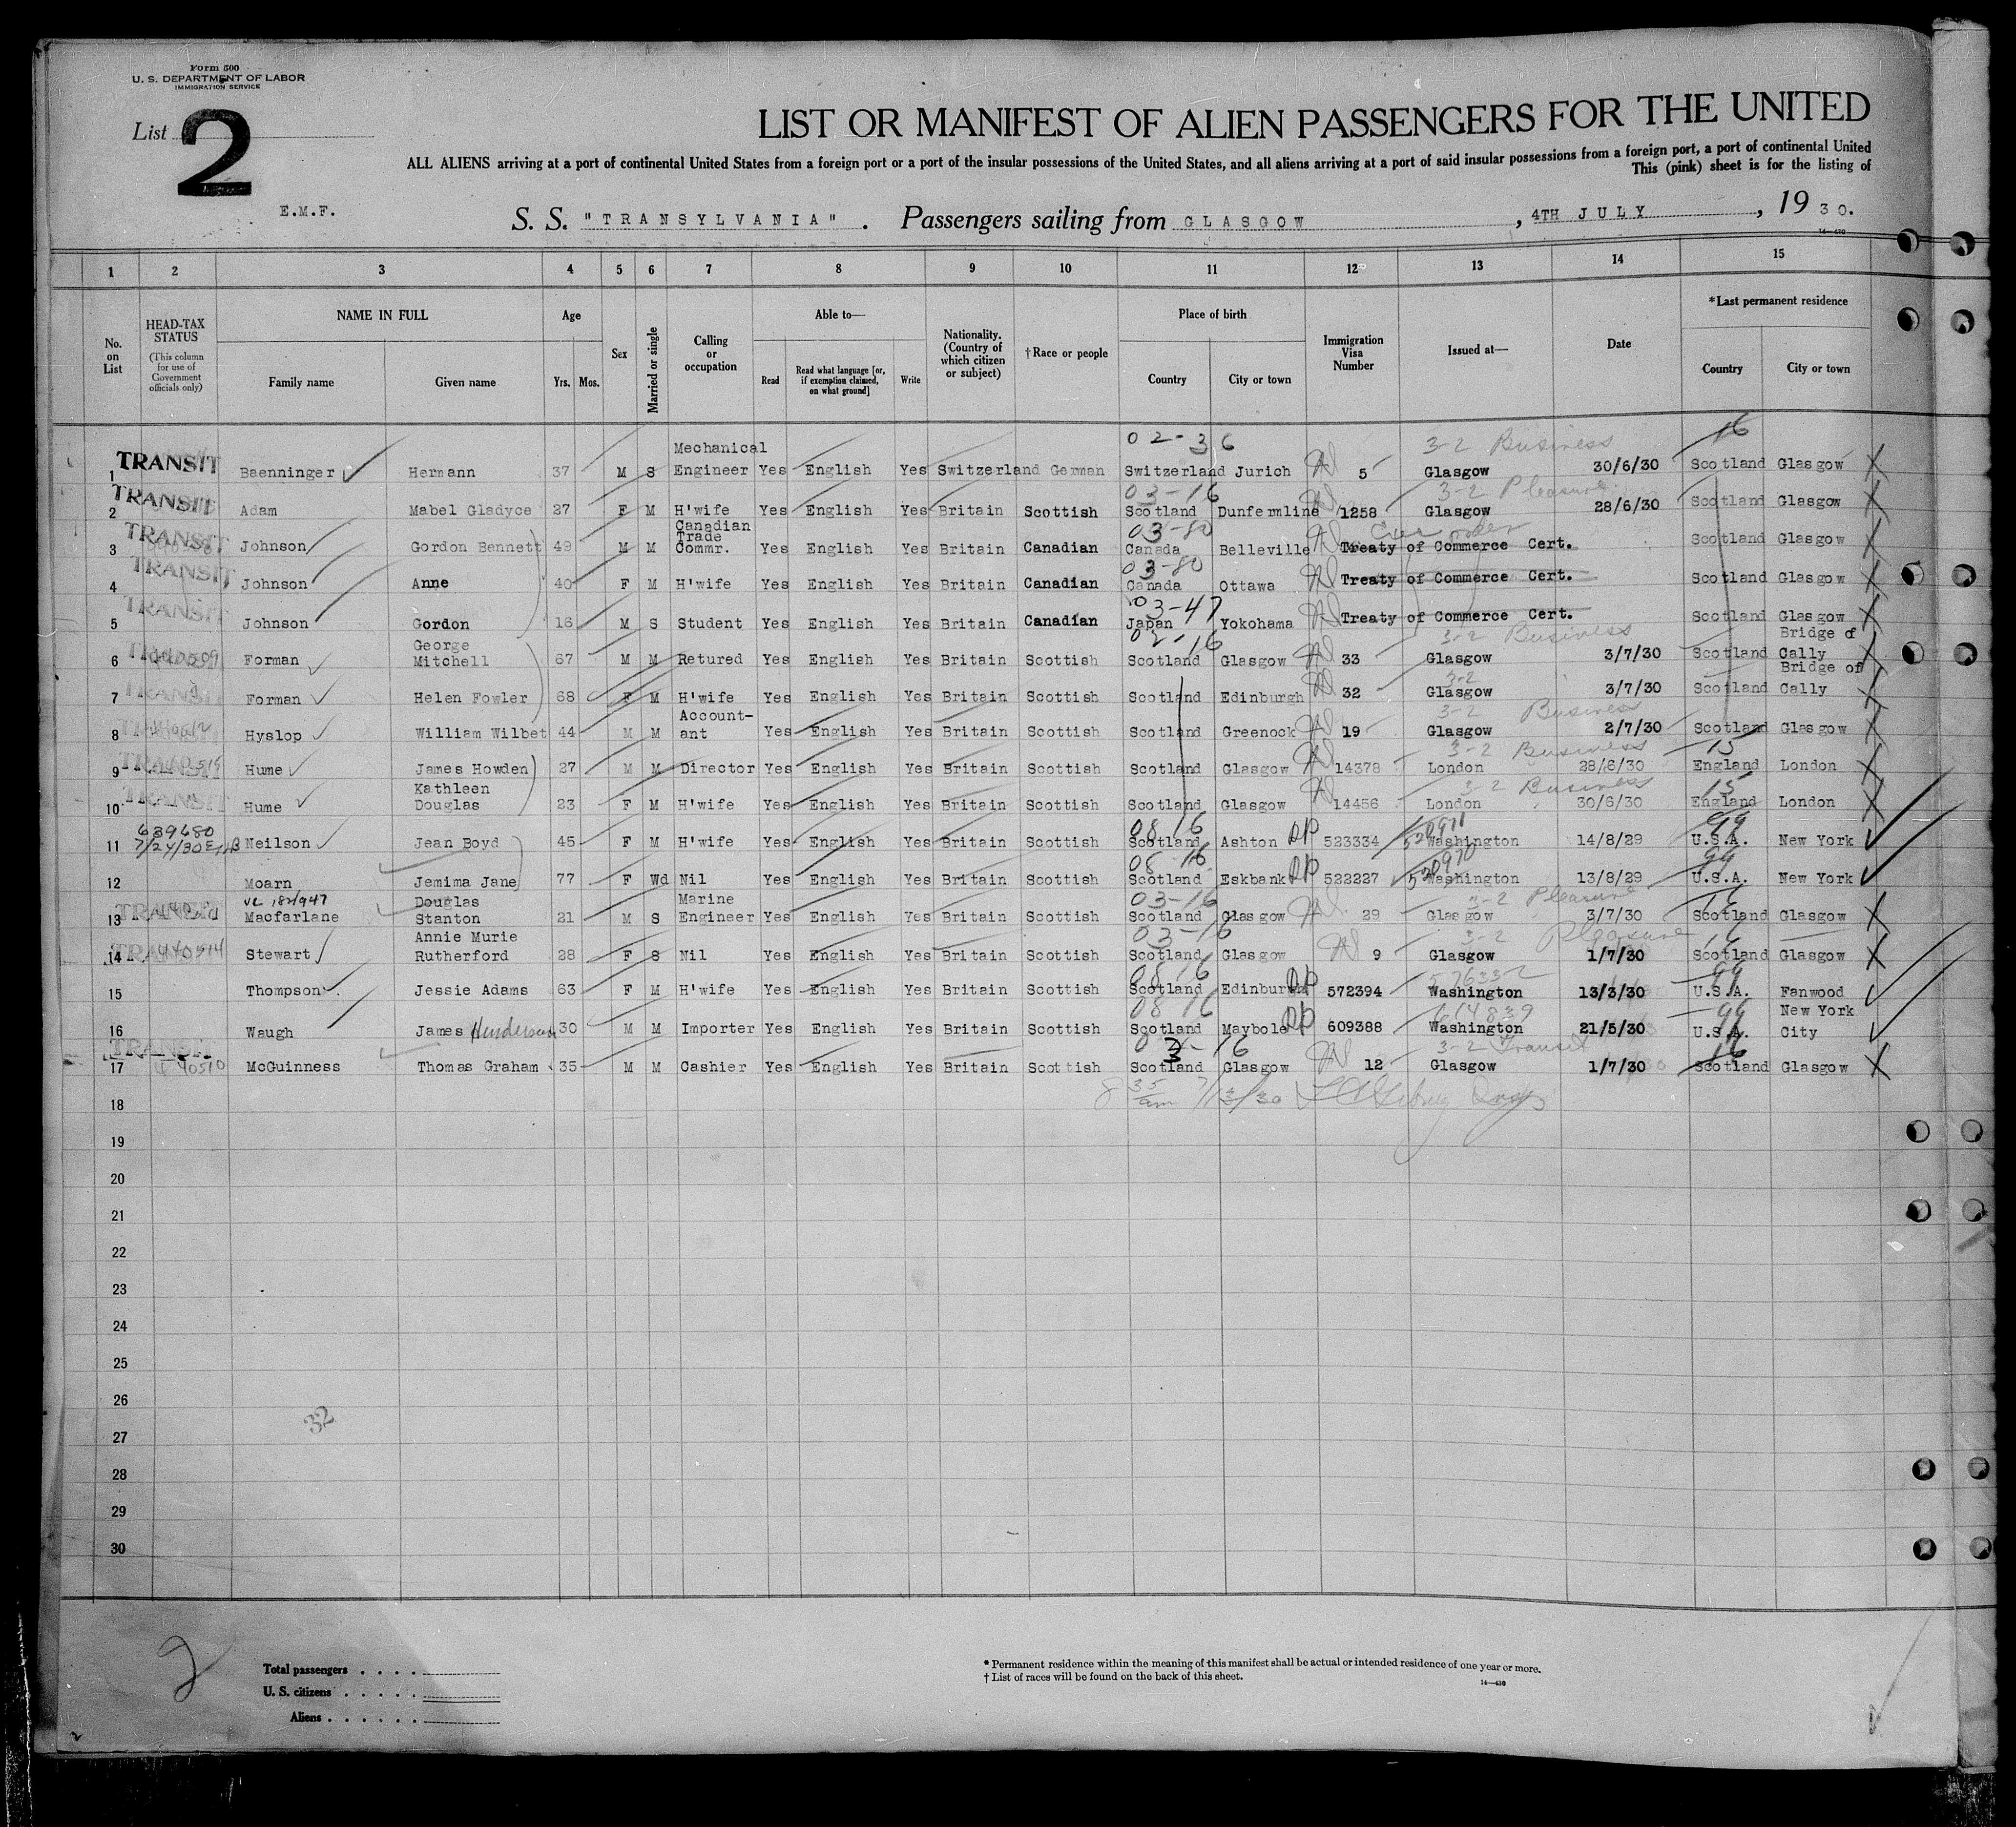 Form 500
U. S. DEPARTMENT OF LABOR
IMMIGRATION SERVICE
List 2
LIST OR MANIFEST OF ALIEN PASSENGERS FOR THE UNITED
ALL ALIENS arriving at a port of continental United States from a foreign port or a port of the insular possessions of the United States, and all aliens arriving at a port of said insular possessions from a foreign port, a port of continental United
This (pink) sheet is for the listing of
E.M.F.
S. S. "TRANSYLVANIA". Passengers sailing from GLASGOW, 4TH JULY, 1930.
14-430
1 2 3 4 5 6 7 8 9 10 11 12 13 14 15
No. on List
HEAD-TAX STATUS (This column for use of Government officials only)
NAME IN FULL
Family name Given name
Age
Yrs. Mos.
Sex
Married or single
Calling or occupation
Able to—
Read
Read what language [or, if exemption claimed, on what ground]
Write
Nationality. (Country of which citizen or subject)
† Race or people
Place of birth
Country City or town
Immigration Visa Number
Issued at—
Date
*Last permanent residence
Country City or town
02-36 3-2 Business 16
1 TRANSIT Baenninger Hermann 37 M S Mechanical Engineer Yes English Yes Switzerland German Switzerland Jurich 5 Glasgow 30/6/30 Scotland Glasgow X
03-16 3-2 Pleasure
2 TRANSIT Adam Mabel Gladyce 27 F M H'wife Yes English Yes Britain Scottish Scotland Dunfermline 1258 Glasgow 28/6/30 Scotland Glasgow X
03-80
3 TRANSIT Johnson Gordon Bennett 49 M M Canadian Trade Commr. Yes English Yes Britain Canadian Canada Belleville Treaty of Commerce Cert. Scotland Glasgow X
03-80
4 TRANSIT Johnson Anne 40 F M H'wife Yes English Yes Britain Canadian Canada Ottawa Treaty of Commerce Cert. Scotland Glasgow X
03-47
5 TRANSIT Johnson Gordon 16 M S Student Yes English Yes Britain Canadian Japan Yokohama Treaty of Commerce Cert. Scotland Glasgow X
02-16 3-2 Business
6 TRANSIT Forman George Mitchell 67 M M Retured Yes English Yes Britain Scottish Scotland Glasgow 33 Glasgow 3/7/30 Scotland Bridge of Cally X
3-2
7 TRANSIT Forman Helen Fowler 68 F M H'wife Yes English Yes Britain Scottish Scotland Edinburgh 32 Glasgow 3/7/30 Scotland Bridge of Cally X
3-2 Business
8 Hyslop William Wilbet 44 M M Account-ant Yes English Yes Britain Scottish Scotland Greenock 19 Glasgow 2/7/30 Scotland Glasgow X
3-2 Business 15
9 TRANSIT Hume James Howden 27 M M Director Yes English Yes Britain Scottish Scotland Glasgow 14378 London 28/6/30 England London X
3-2 Business 15
10 TRANSIT Hume Kathleen Douglas 23 F M H'wife Yes English Yes Britain Scottish Scotland Glasgow 14456 London 30/6/30 England London X
639680 08 16 520971 99
11 7/24/30 Neilson Jean Boyd 45 F M H'wife Yes English Yes Britain Scottish Scotland Ashton 523334 Washington 14/8/29 U.S.A. New York
08 16 520970 99
12 Moarn Jemima Jane 77 F Wd Nil Yes English Yes Britain Scottish Scotland Eskbank 522227 Washington 13/8/29 U.S.A. New York
VL 182/947 03-16 3-2 Pleasure 16
13 TRANSIT Macfarlane Douglas Stanton 21 M S Marine Engineer Yes English Yes Britain Scottish Scotland Glasgow 29 Glasgow 3/7/30 Scotland Glasgow X
03-16 3-2 Pleasure 16
14 TRANSIT 440514 Stewart Annie Murie Rutherford 28 F S Nil Yes English Yes Britain Scottish Scotland Glasgow 9 Glasgow 1/7/30 Scotland Glasgow X
08 16 576332 99
15 Thompson Jessie Adams 63 F M H'wife Yes English Yes Britain Scottish Scotland Edinburgh 572394 Washington 13/3/30 U.S.A. Fanwood
08 16 614839 99
16 Waugh James Henderson 30 M M Importer Yes English Yes Britain Scottish Scotland Maybole 609388 Washington 21/5/30 U.S.A. New York City
16 3-2 Transit 16
17 TRANSIT 440510 McGuinness Thomas Graham 35 M M Cashier Yes English Yes Britain Scottish Scotland Glasgow 12 Glasgow 1/7/30 Scotland Glasgow X
18 8 35 am 7/13/30
19
20
21
22
23
24
25
26
27
28
29
30
32
2
Total passengers
U. S. citizens
Aliens
* Permanent residence within the meaning of this manifest shall be actual or intended residence of one year or more.
† List of races will be found on the back of this sheet.
14-430
2